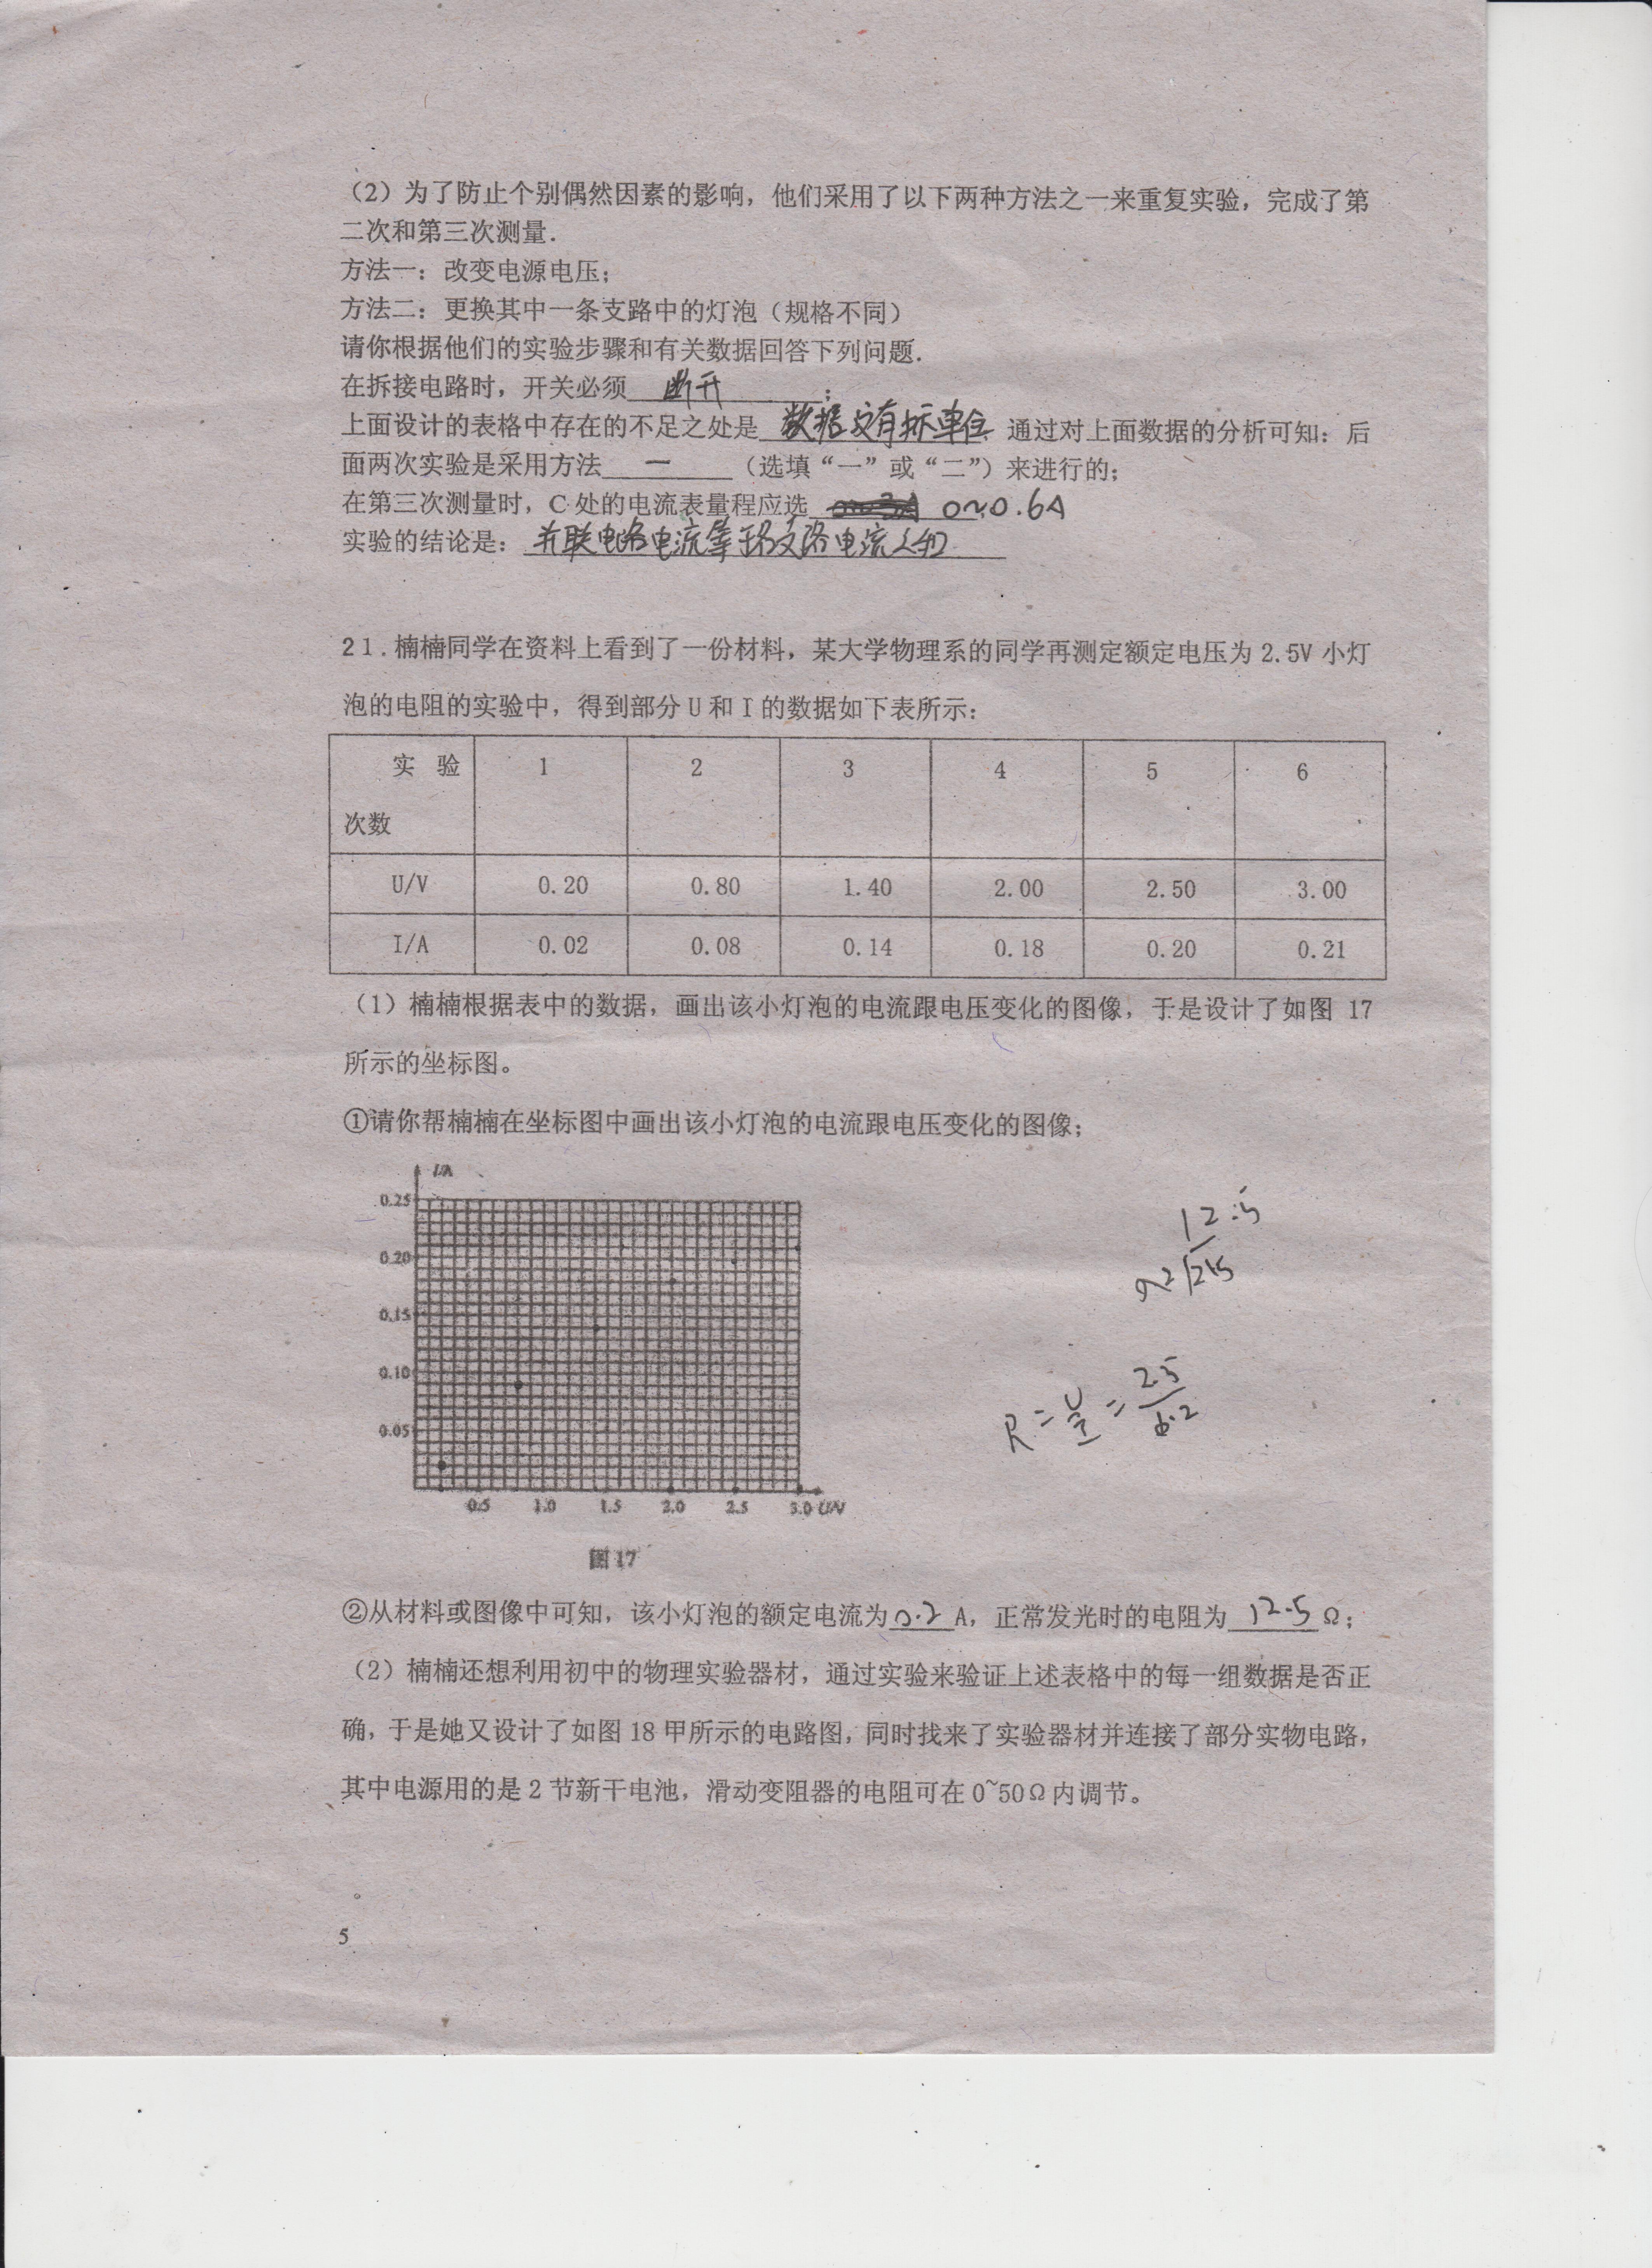 （2）为了防止个别偶然因素的影响，他们采用了以下两种方法之一来重复实验，完成了第
二次和第三次测量.
方法一：改变电源电压；
方法二：更换其中一条支路中的灯泡（规格不同）
请你根据他们的实验步骤和有关数据回答下列问题.
在拆接电路时，开关必须 断开 ；
上面设计的表格中存在的不足之处是 数据没有标单位 . 通过对上面数据的分析可知：后
面两次实验是采用方法 一 （选填“一”或“二”）来进行的；
在第三次测量时，C处的电流表量程应选 0~3A 0~0.6A
实验的结论是： 并联电路电流等于各支路电流之和
21.楠楠同学在资料上看到了一份材料，某大学物理系的同学再测定额定电压为2.5V小灯
泡的电阻的实验中，得到部分U和I的数据如下表所示：
实 验 1 2 3 4 5 6
次数
U/V 0.20 0.80 1.40 2.00 2.50 3.00
I/A 0.02 0.08 0.14 0.18 0.20 0.21
（1）楠楠根据表中的数据，画出该小灯泡的电流跟电压变化的图像，于是设计了如图 17
所示的坐标图。
①请你帮楠楠在坐标图中画出该小灯泡的电流跟电压变化的图像；
I/A
0.25
0.20
0.15
0.10
0.05
0.5 1.0 1.5 2.0 2.5 3.0 U/V
图17
12.5
R=U/I=2.5/0.2
②从材料或图像中可知，该小灯泡的额定电流为 0.2 A，正常发光时的电阻为 12.5 Ω；
（2）楠楠还想利用初中的物理实验器材，通过实验来验证上述表格中的每一组数据是否正
确，于是她又设计了如图18甲所示的电路图，同时找来了实验器材并连接了部分实物电路，
其中电源用的是2节新干电池，滑动变阻器的电阻可在0~50Ω内调节。
5